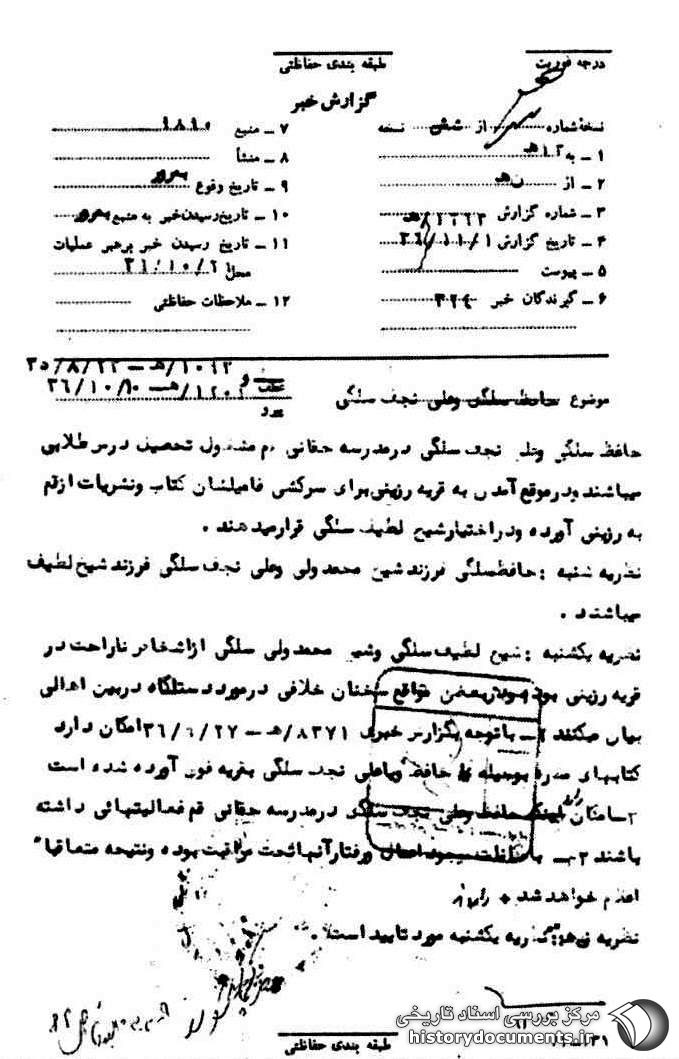 درجه فوریت
طبقه بندی حفاظتی
گزارش خبر
نسخهٔ شماره از شش نسخه
۱ ـ به ۱۲ هـ
۲ ـ از ن هـ
۳ ـ شماره گزارش
۴ ـ تاریخ گزارش ۳۶/۱۱/۱
۵ ـ پیوست
۶ ـ گیرندگان خبر ۳۲۴
۷ ـ منبع ۹۸۹۰
۸ ـ منشأ
۹ ـ تاریخ وقوع بمرور
۱۰ ـ تاریخ رسیدن خبر به منبع بمرور
۱۱ ـ تاریخ رسیدن خبر برهبر عملیات
محل ۳۶/۱۰/۲۱
۱۲ ـ ملاحظات حفاظتی
موضوع حافظ سلگی وعلی نجف سلگی
حافظ سلگی وعلی نجف سلگی درمدرسه حقانی قم مشغول تحصیل درس طلابی
میباشند ودرموقع آمدن به قریه رزینی برای سرکشی فامیلشان کتاب ونشریات ازقم
به رزینی آورده ودراختیارشیخ لطیف سلگی قرارمیدهند .
نظریه شنبه : حافظ سلگی فرزند شیخ محمد ولی وعلی نجف سلگی فرزند شیخ لطیف
میباشند .
نظریه یکشنبه : شیخ لطیف سلگی وشیخ محمد ولی سلگی ازاشخاص ناراحت در
قریه رزینی بوده ودربعضی مواقع سخنان خلافی درمورد دستگاه دربین اهالی
بیان میکنند ۲ ـ باتوجه بگزارش خبری ۸۳۷۱/هـ ـ ۳۶/۶/۲۷ امکان دارد
کتابهای مضره بوسیله حافظ ویاعلی نجف سلگی بقریه فوق آورده شده است
۳ـ امکان دارد حافظ وعلی نجف سلگی درمدرسه حقانی قم فعالیتهائی داشته
باشند ورفتارآنهاتحت مراقبت بوده ونتیجه متعاقبا"
اعلام خواهد شد .
نظریه ن هـ : نظریه یکشنبه مورد تایید است .
طبقه بندی حفاظتی
مرکز بررسی اسناد تاریخی
historydocuments.ir